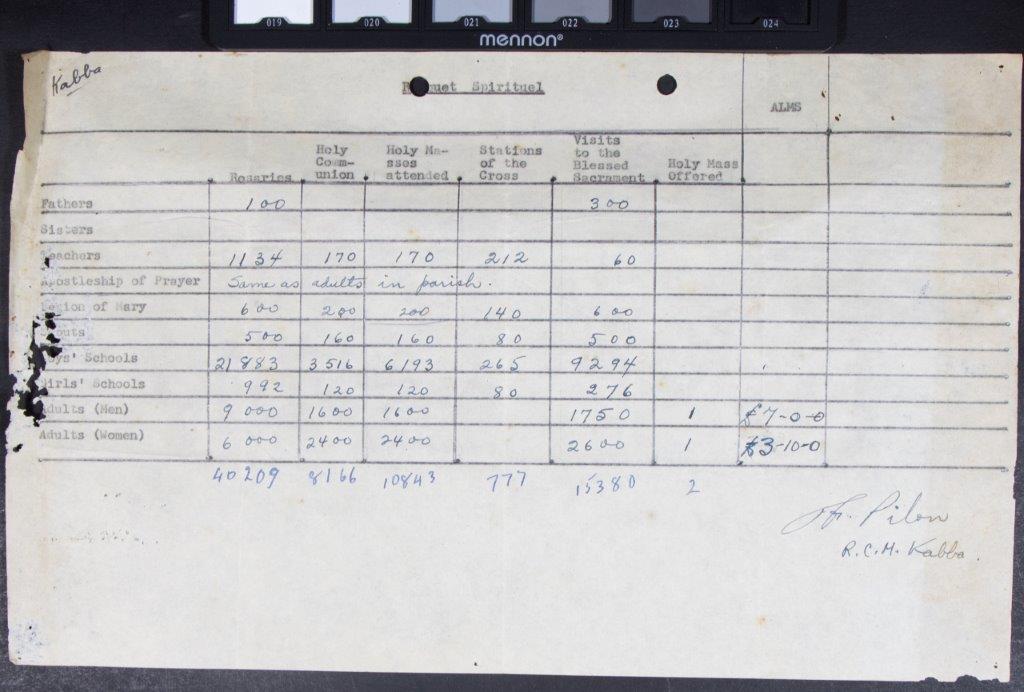 019 020 021 022 023 024
mennon®
Kabba
Bouquet Spirituel
ALMS
Rosaries
Holy Comm-
union
Holy Ma-
sses
attended
Stations
of the
Cross
Visits
to the
Blessed
Sacrament
Holy Mass
Offered
Fathers 100 300
Sisters
Teachers 1134 170 170 212 60
Apostleship of Prayer Same as adults in parish.
Legion of Mary 600 200 200 140 600
Scouts 500 160 160 80 500
Boys' Schools 21883 3516 6193 265 9294
Girls' Schools 992 120 120 80 276
Adults (Men) 9000 1600 1600 1750 1 £7-0-0
Adults (Women) 6000 2400 2400 2600 1 £3-10-0
40209 8166 10843 777 15380 2
Pilon
R.C.M. Kabba.